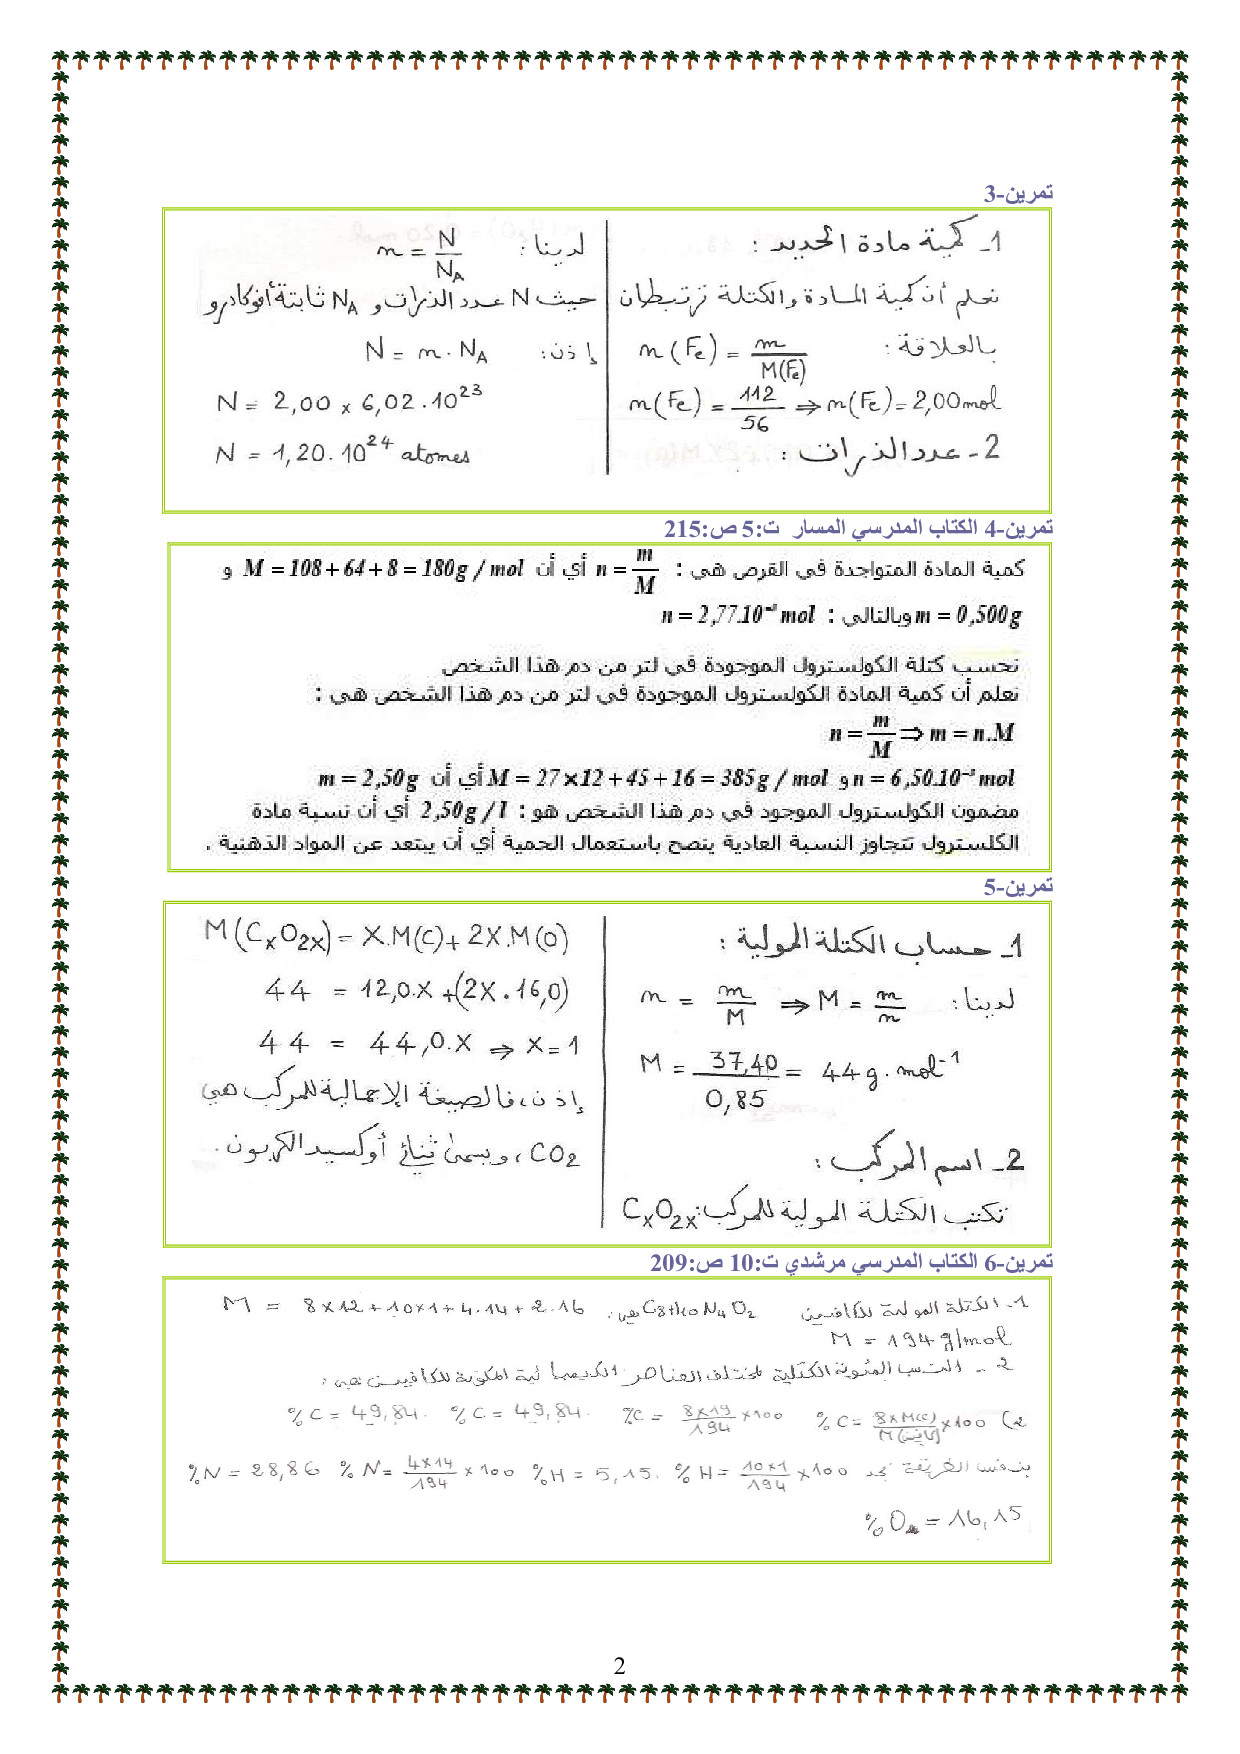 تمرين-3
1_ كمية مادة الحديد :
نعلم أن كمية المادة والكتلة ترتبطان
بالعلاقة : n(Fe) = m/M(Fe)
n(Fe) = 112/56 ⇒ n(Fe) = 2,00 mol
2- عدد الذرات :
لدينا : n = N/NA
حيث N عدد الذرات و NA ثابتة أفوكادرو
إذن : N = n . NA
N = 2,00 x 6,02 . 10²³
N = 1,20 . 10²⁴ atomes
تمرين-4 الكتاب المدرسي المسار ت:5 ص:215
كمية المادة المتواجدة في القرص هي : n = m/M أي أن M = 108 + 64 + 8 = 180g / mol و
m = 0,500g وبالتالي : n = 2,77.10⁻³ mol
نحسب كتلة الكولسترول الموجودة في لتر من دم هذا الشخص
نعلم أن كمية المادة الكولسترول الموجودة في لتر من دم هذا الشخص هي :
n = m/M ⇒ m = n.M
n = 6,50.10⁻³ mol و M = 27×12 + 45 + 16 = 385g / mol أي أن m = 2,50g
مضمون الكولسترول الموجود في دم هذا الشخص هو : 2,50g / l أي أن نسبة مادة
الكلسترول تتجاوز النسبة العادية ينصح باستعمال الحمية أي أن يبتعد عن المواد الذهنية .
تمرين-5
1_ حساب الكتلة المولية :
لدينا : n = m/M ⇒ M = m/n
M = 37,40/0,85 = 44 g . mol⁻¹
2_ اسم المركب :
نكتب الكتلة المولية للمركب : CxO2x
M(CxO2x) = X.M(C) + 2X.M(O)
44 = 12,0.X + (2X . 16,0)
44 = 44,0.X ⇒ X = 1
إذن ، فالصيغة الإجمالية للمركب هي
CO2 ، ويسمى ثنائي أوكسيد الكربون .
تمرين-6 الكتاب المدرسي مرشدي ت:10 ص:209
1- الكتلة المولية للكافيين C8H10N4O2 هي : M = 8×12 + 10×1 + 4.14 + 2.16
M = 194 g/mol
2 - النسب المئوية الكتلية لمختلف العناصر الكيميائية المكونة للكافيين هي :
%C = 8×M(C)/M(كافيين) ×100 %C = 8×19/194 ×100 %C = 49,84. %C = 49,84.
بنفس الطريقة نجد %H = 10×1/194 ×100 %H = 5,15. %N = 4×14/194 ×100 %N = 28,86
%O = 16,15
2